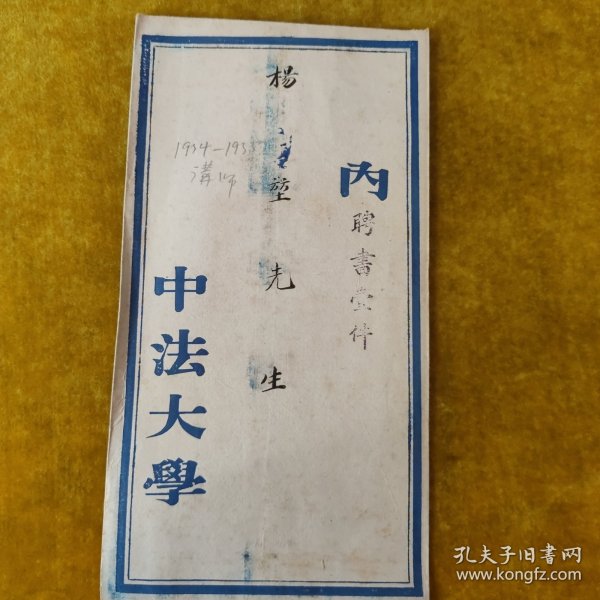 內聘書壹件
楊 堃先生
1934-1935
講師
中法大學
孔夫子旧書网
www.kongfz.com